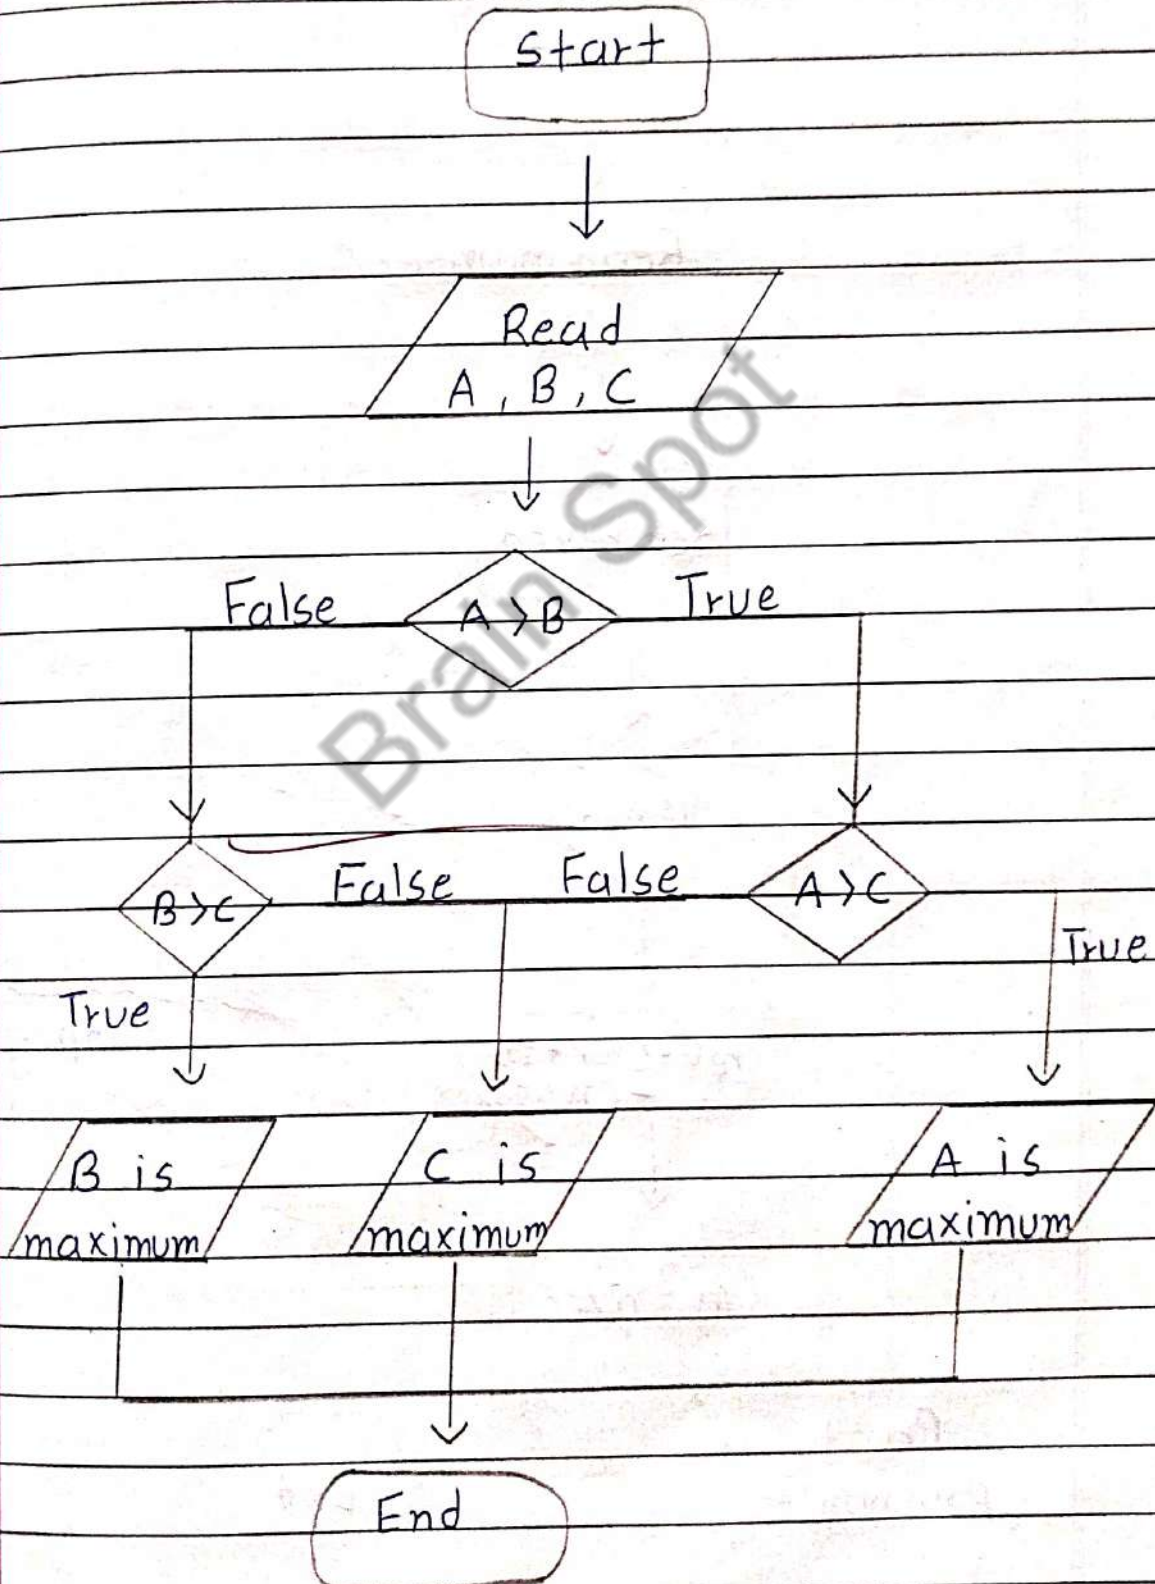 Start
Read
A, B, C
Brain Spot
False
A > B
True
B > C
False
False
A > C
True
True
B is
maximum
C is
maximum
A is
maximum
End